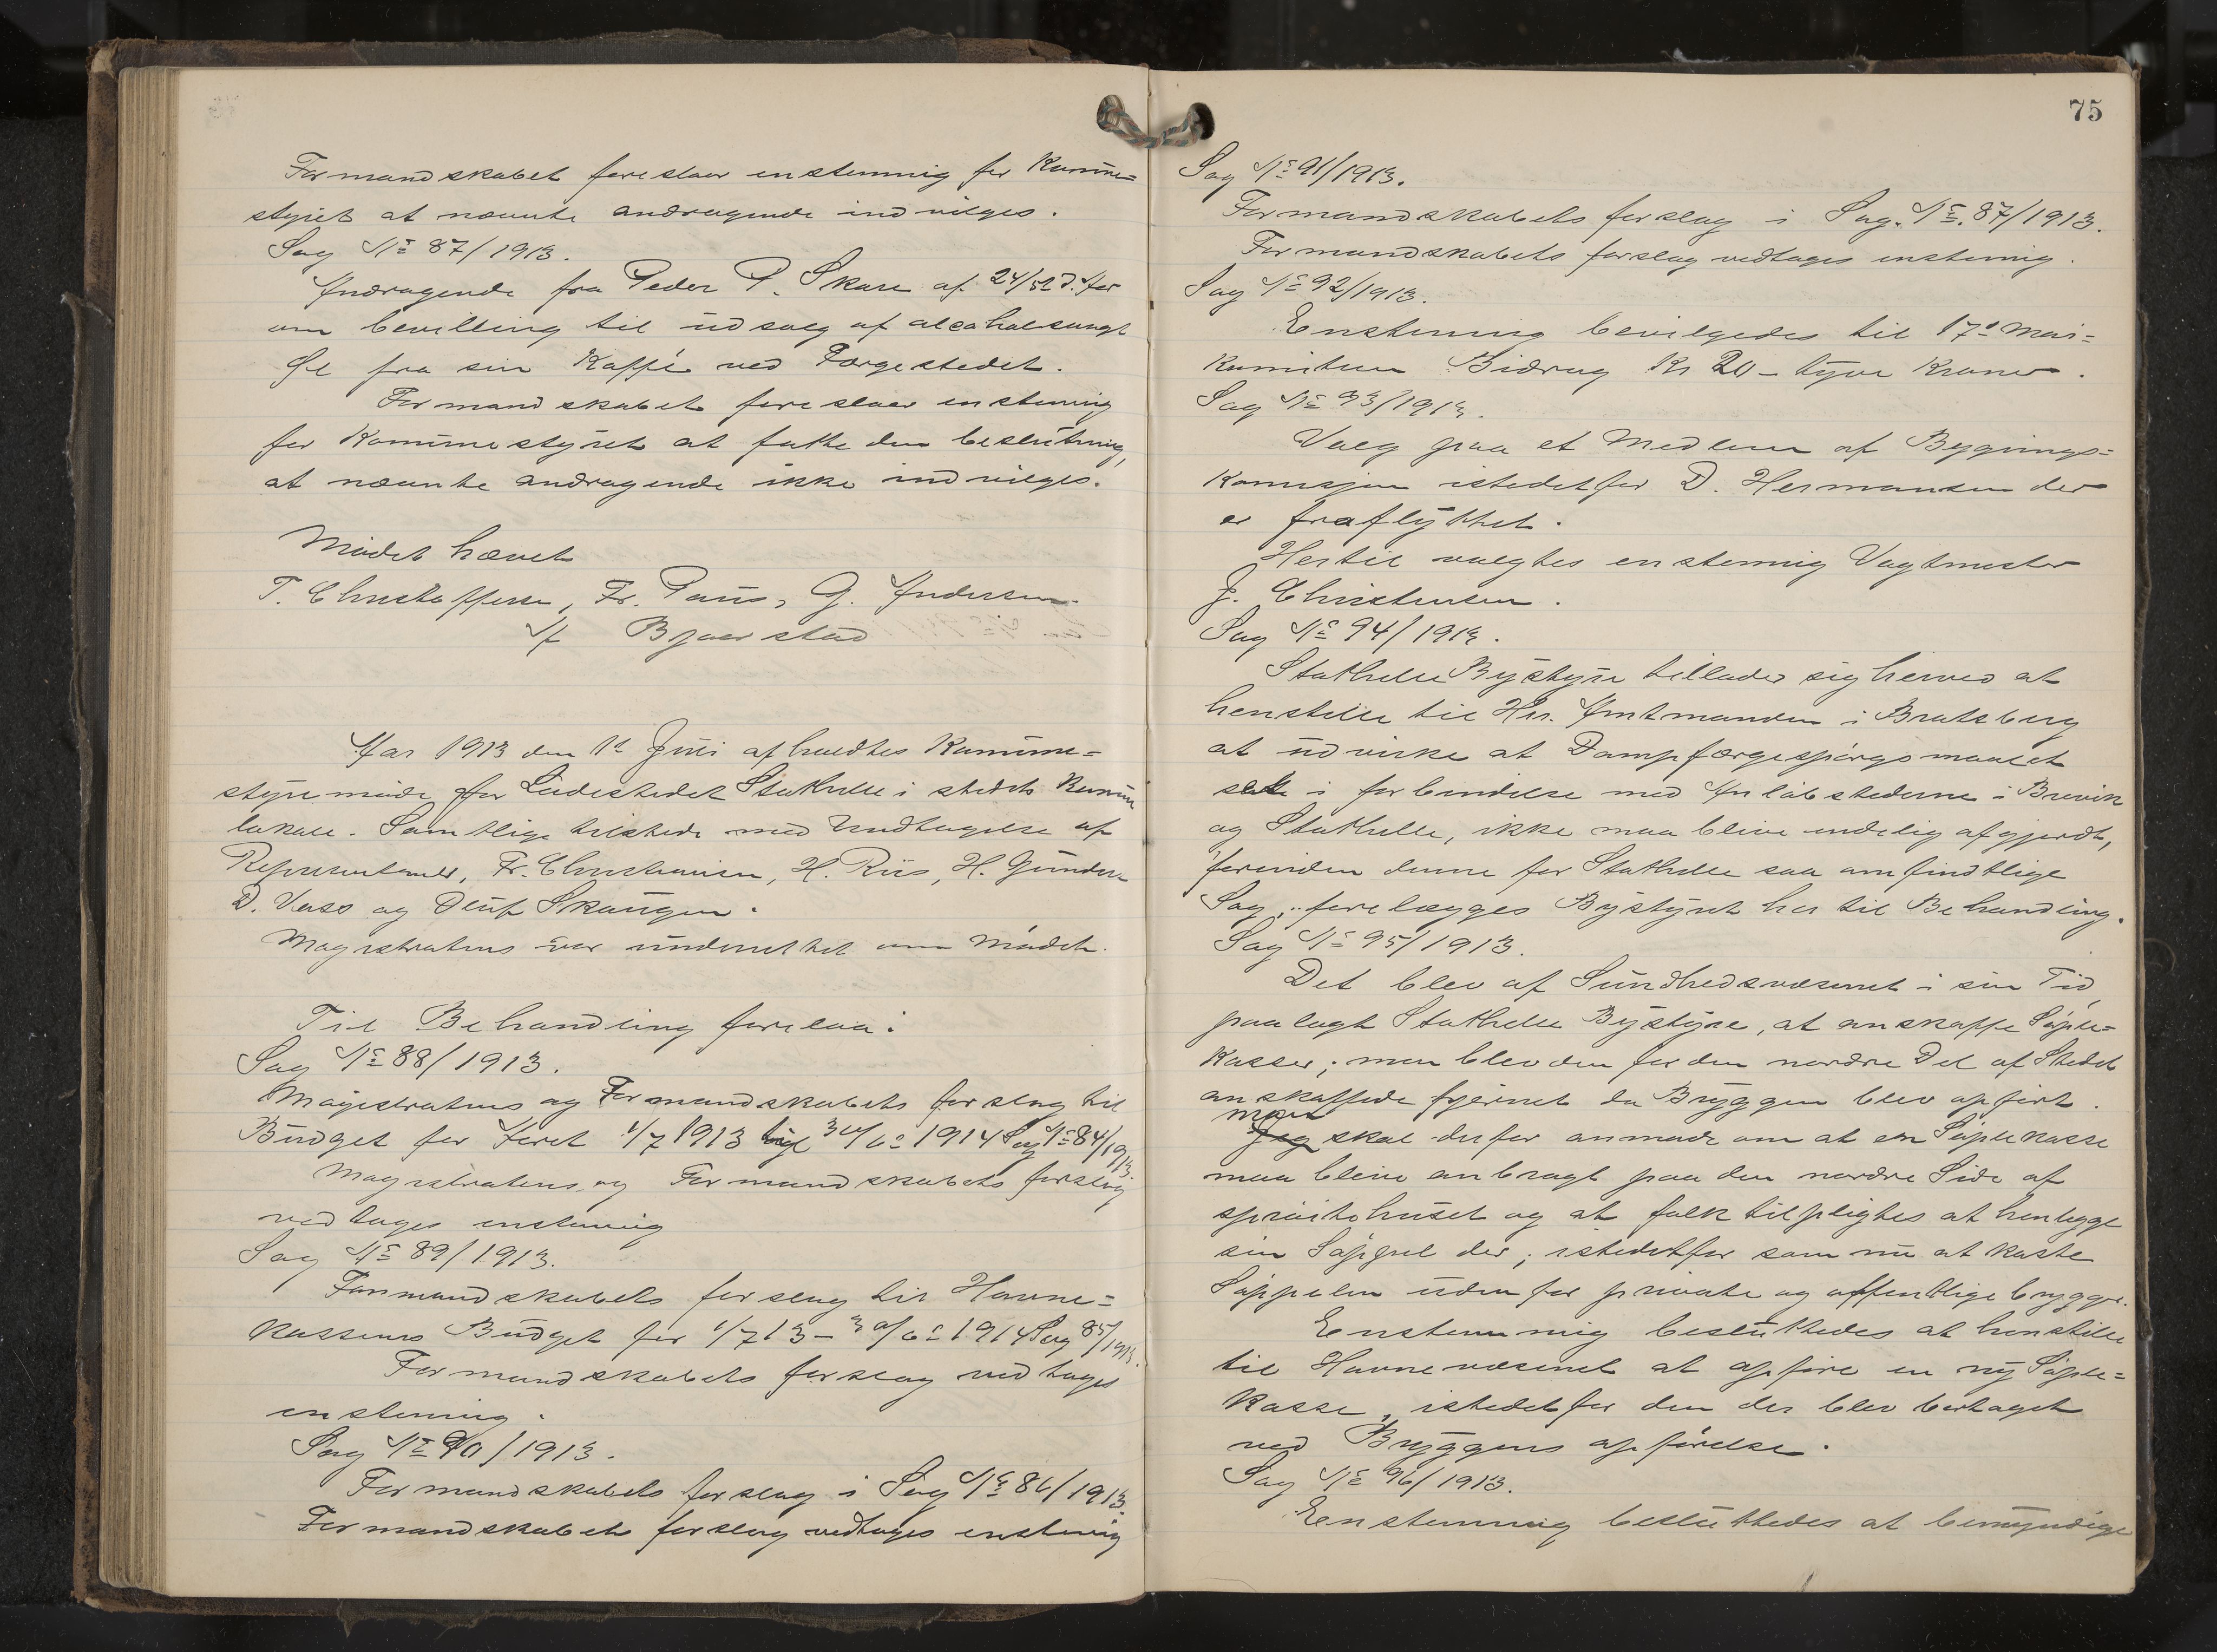 Formandskabet foreslaar enstemmig for Kommune=
styret at nævnte andragende indvilges.
Sag No 87/1913.
Andragende fra Peder P. Skare af 24/5 d. Aar
om bevilling til udsalg af alcoholsvagt
Øl fra sin Kaffé ved Færgestedet.
Formandskabet foreslaar enstemmig
for Kommunestyret at fatte den beslutning,
at nævnte andragende ikke indvilges.
Mødet hævet
T. Christoffersen, Fr. Paus, G. Andersen.
A Bjaerstad
Aar 1913 den 12 Juni afholdtes Kommune=
styremøde for Ladestedet Stathelle i stedets Kommune
lokale. Samtlige tilstede med Undtagelse af
Repræsentanter, Fr. Christiansen, H. Riis, H. Gunders
D. Vass og Oluf Skaugen.
Magistratens var underrettet om Mødet.
Til Behandling forelaa:
Sag No 88/1913.
Magistratens og Formandskabets forslag til
Budget for Aaret 1/7 1913 til 30/6 1914 Sag No 84/1913.
Magistratens og Formandskabets forslag
vedtages enstemmig
Sag No 89/1913.
Formandskabets forslag til Havne=
kassens Budget for 1/7 13 – 30/6 1914 Sag 85/1913.
Formandskabets forslag vedtages
enstemmig.
Sag No 90/1913.
Formandskabets forslag i Sag No 86/1913
Formandskabets forslag vedtages enstemmig
75
Sag No 91/1913.
Formandskabets forslag i Sag. No. 87/1913.
Formandskabets forslag vedtages enstemmig.
Sag No 92/1913.
Enstemmig bevilgedes til 17de Mai=
Komiteen Bidrag Kr 20 – tyve Kroner.
Sag No 93/1913.
Valg paa et Medlem af Bygnings=
Komisjon istedetfor D. Hermansen der
er fraflyttet.
Hertil valgtes enstemmig Vagtmester
J. Christensen.
Sag No 94/1913.
Stathelle Bystyre tillader sig herved at
henstille til Hr. Amtmanden i Bratsberg
at udvirke at Dampfærgespørgsmaalet
sat i forbindelse med Anløbstederne i Brevik
og Stathelle, ikke maa blive endelig afgjordt,
forinden denne for Stathelle saa omfindtlige
Sag, forelægges Bystyret her til Behandling.
Sag No 95/1913.
Det blev af Sundhedsvæsenet i sin Tid
paalagt Stathelle Bystyre, at anskaffe Søple=
Kasser; men blev den for den nordre Del af Stedet
anskaffede fjernet da Bryggen blev opført.
man
Jeg skal derfor anmode om at en Søplekasse
maa blive anbragt paa den nordre Side af
sprøitehuset og at folk tilpligtes at henlegge
sin Søppel der; istedetfor som nu at kaste
Søppelen udenfor private og offentlige brygger.
Enstemmig besluttedes at henstille
til Havnevæsenet at opføre en ny Søple=
Kasse, istedetfor den der blev borttaget
ved Bryggens opførelse.
Sag No 96/1913.
Enstemmig besluttedes at bemyndige